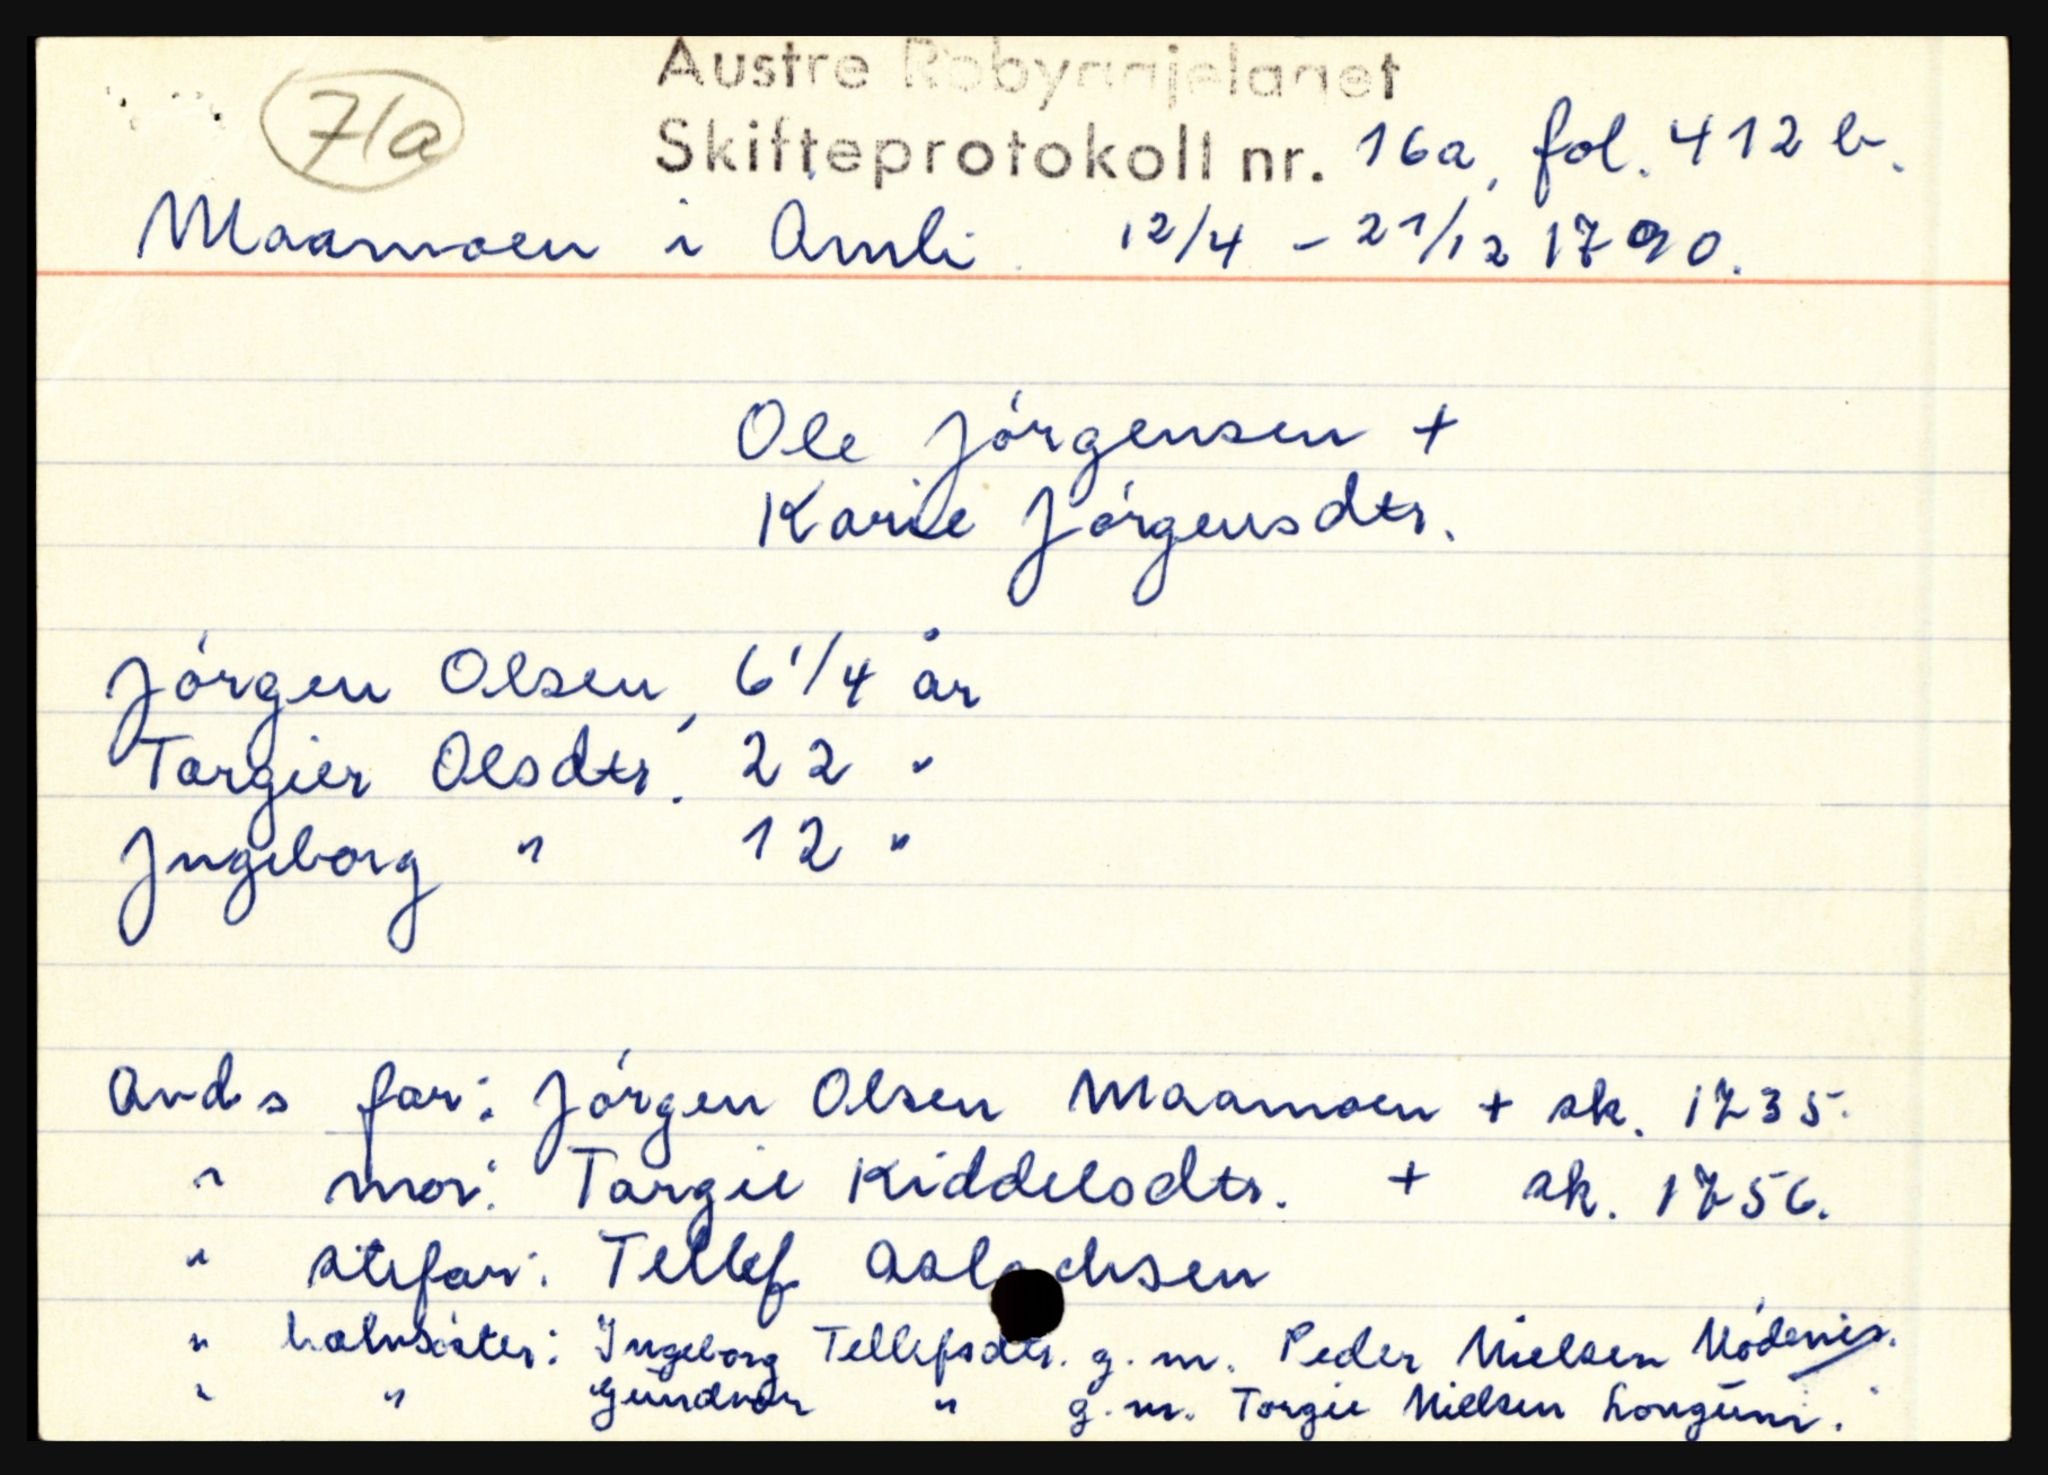 71a
Austre Robyggjelaget
Skifteprotokoll nr. 16a, fol. 412 b.
Maamoen i Åmli 12/4 - 21/12 1790.
Ole Jörgensen +
Karie Jörgensdtr.
Jörgen Olsen, 6 1/4 år
Torgier Olsdtr. 22 "
Jngeborg " 12 "
Avds far: Jörgen Olsen Maamoen + sk. 1735.
" mor: Torgie Kiddelsdtr. + sk. 1756.
" stefar: Tellef Aslachsen
" halvsöster: Ingeborg Tellefsdtr. g. m. Peder Nielsen
" " Gundvor " g. m. Torgie Nielsen